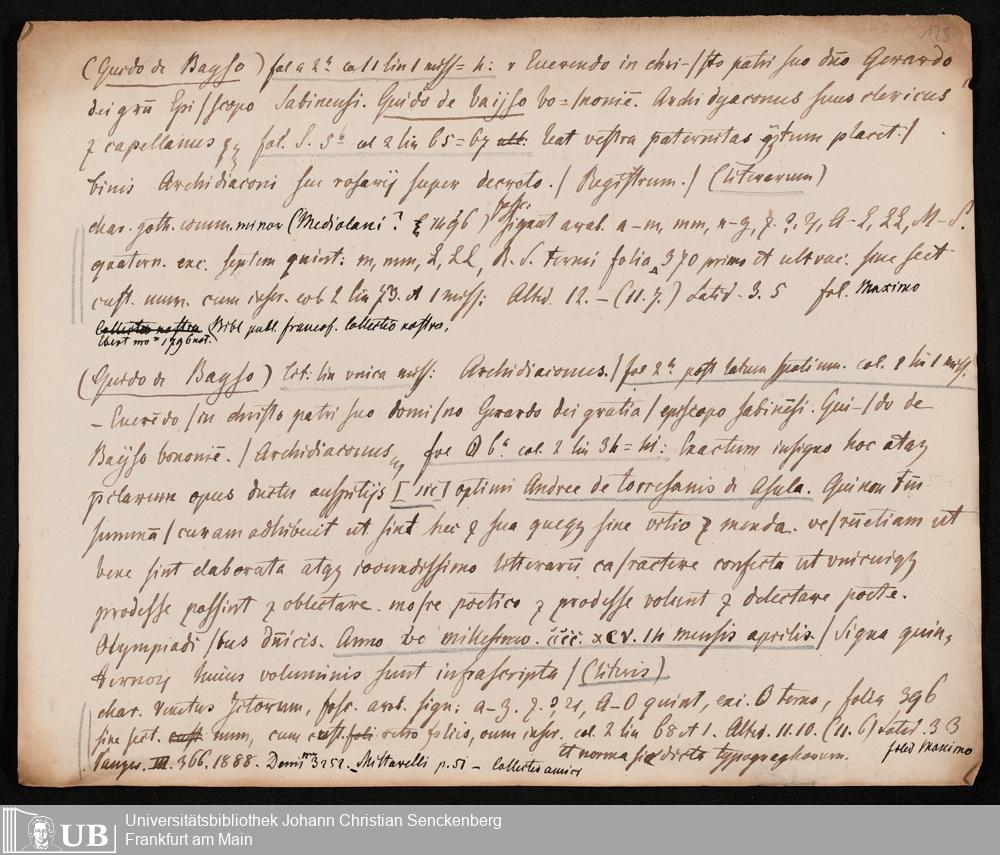 123
(Guido de Bayso) fol a 2ª col 1 lin 1 miss= h: r Everendo in chri-/sto patri suo dño Gerardo
dei grã Epi/scopo Sabinensi. Guido de baijso bo=/nonie. Archidyaconus suus clericus
⁊ capellanus fol. S. 5ᵇ col 2 lin 65=67 leat vestra paternitas tum placet:/
binis Archidiaconi seu rosarij super decreto./ Registrum./ (literarum)
char. goth. comm. minor (Mediolani? 1496) signat arab. a–m, mm, n–z, ⁊. ?, A–L, LL, M–S.
quatern. exc. septem quint: m, mm, L, LL, R. S. terni folia 370 primo et ult vac. sine sect
cust. num. cum inscr. col 2 lin 73. et 1 miss: Altid. 12. – (11.7.) Latid. 3. 5 fol. Maximo
Collectio nostra Bibl publ. francof. Collectio nostra.
Ebert nro 1796 not.
(Guido de Bayso) tit: lin unica miss: Archidiaconus./ fol 2ª post latum spatium. col. 1 lin 1 miss.
– Everẽdo /in christo patri suo domi/no Gerardo dei gratia / episcopo sabinẽsi. Gui–/do de
Baijso bononiẽ./ Archidiaconus fol O 6ª col. 2 lin 34= ni: Exactum insigne hoc atq
pclarum opus ductu auspitijs [sic] optimi Andree de torresanis de Asula. Qui non tm
summã / curam adhibuit ut sint hec ⁊ sua queqz sine vitio ⁊ menda. ve/rũetiam ut
bene sint elaborata atqz iocundissimo litterarũ ca/ractere confecta ut unicuiqz
prodesse possint ⁊ oblectare. mo/re poetico ⁊ prodesse volunt ⁊ delectare poete.
Olympiadi /bus dñicis. Anno vo millesimo. cccc. xcv. 14 mensis aprilis./ Signa quin,
ternorz huius voluminis sunt infrascripta / (literis)
char. Venetus Jctorum, fosc. arab. sign: a–z. ⁊. ?, A–O quint, exc. O terno, folia 396
sine sect. cust num, cum cust. foli retro folijs, cum inscr. col. 2 lin 68 et 1. Altid. 11.10. (11.6) Latid. 3 3
et norma sic dicta typographorum. folio Maximo
Panzer. III. 366. 1888. Denis nro 3252. Mittarelli p. 51 – Collectio amici
Universitätsbibliothek Johann Christian Senckenberg
Frankfurt am Main
UB